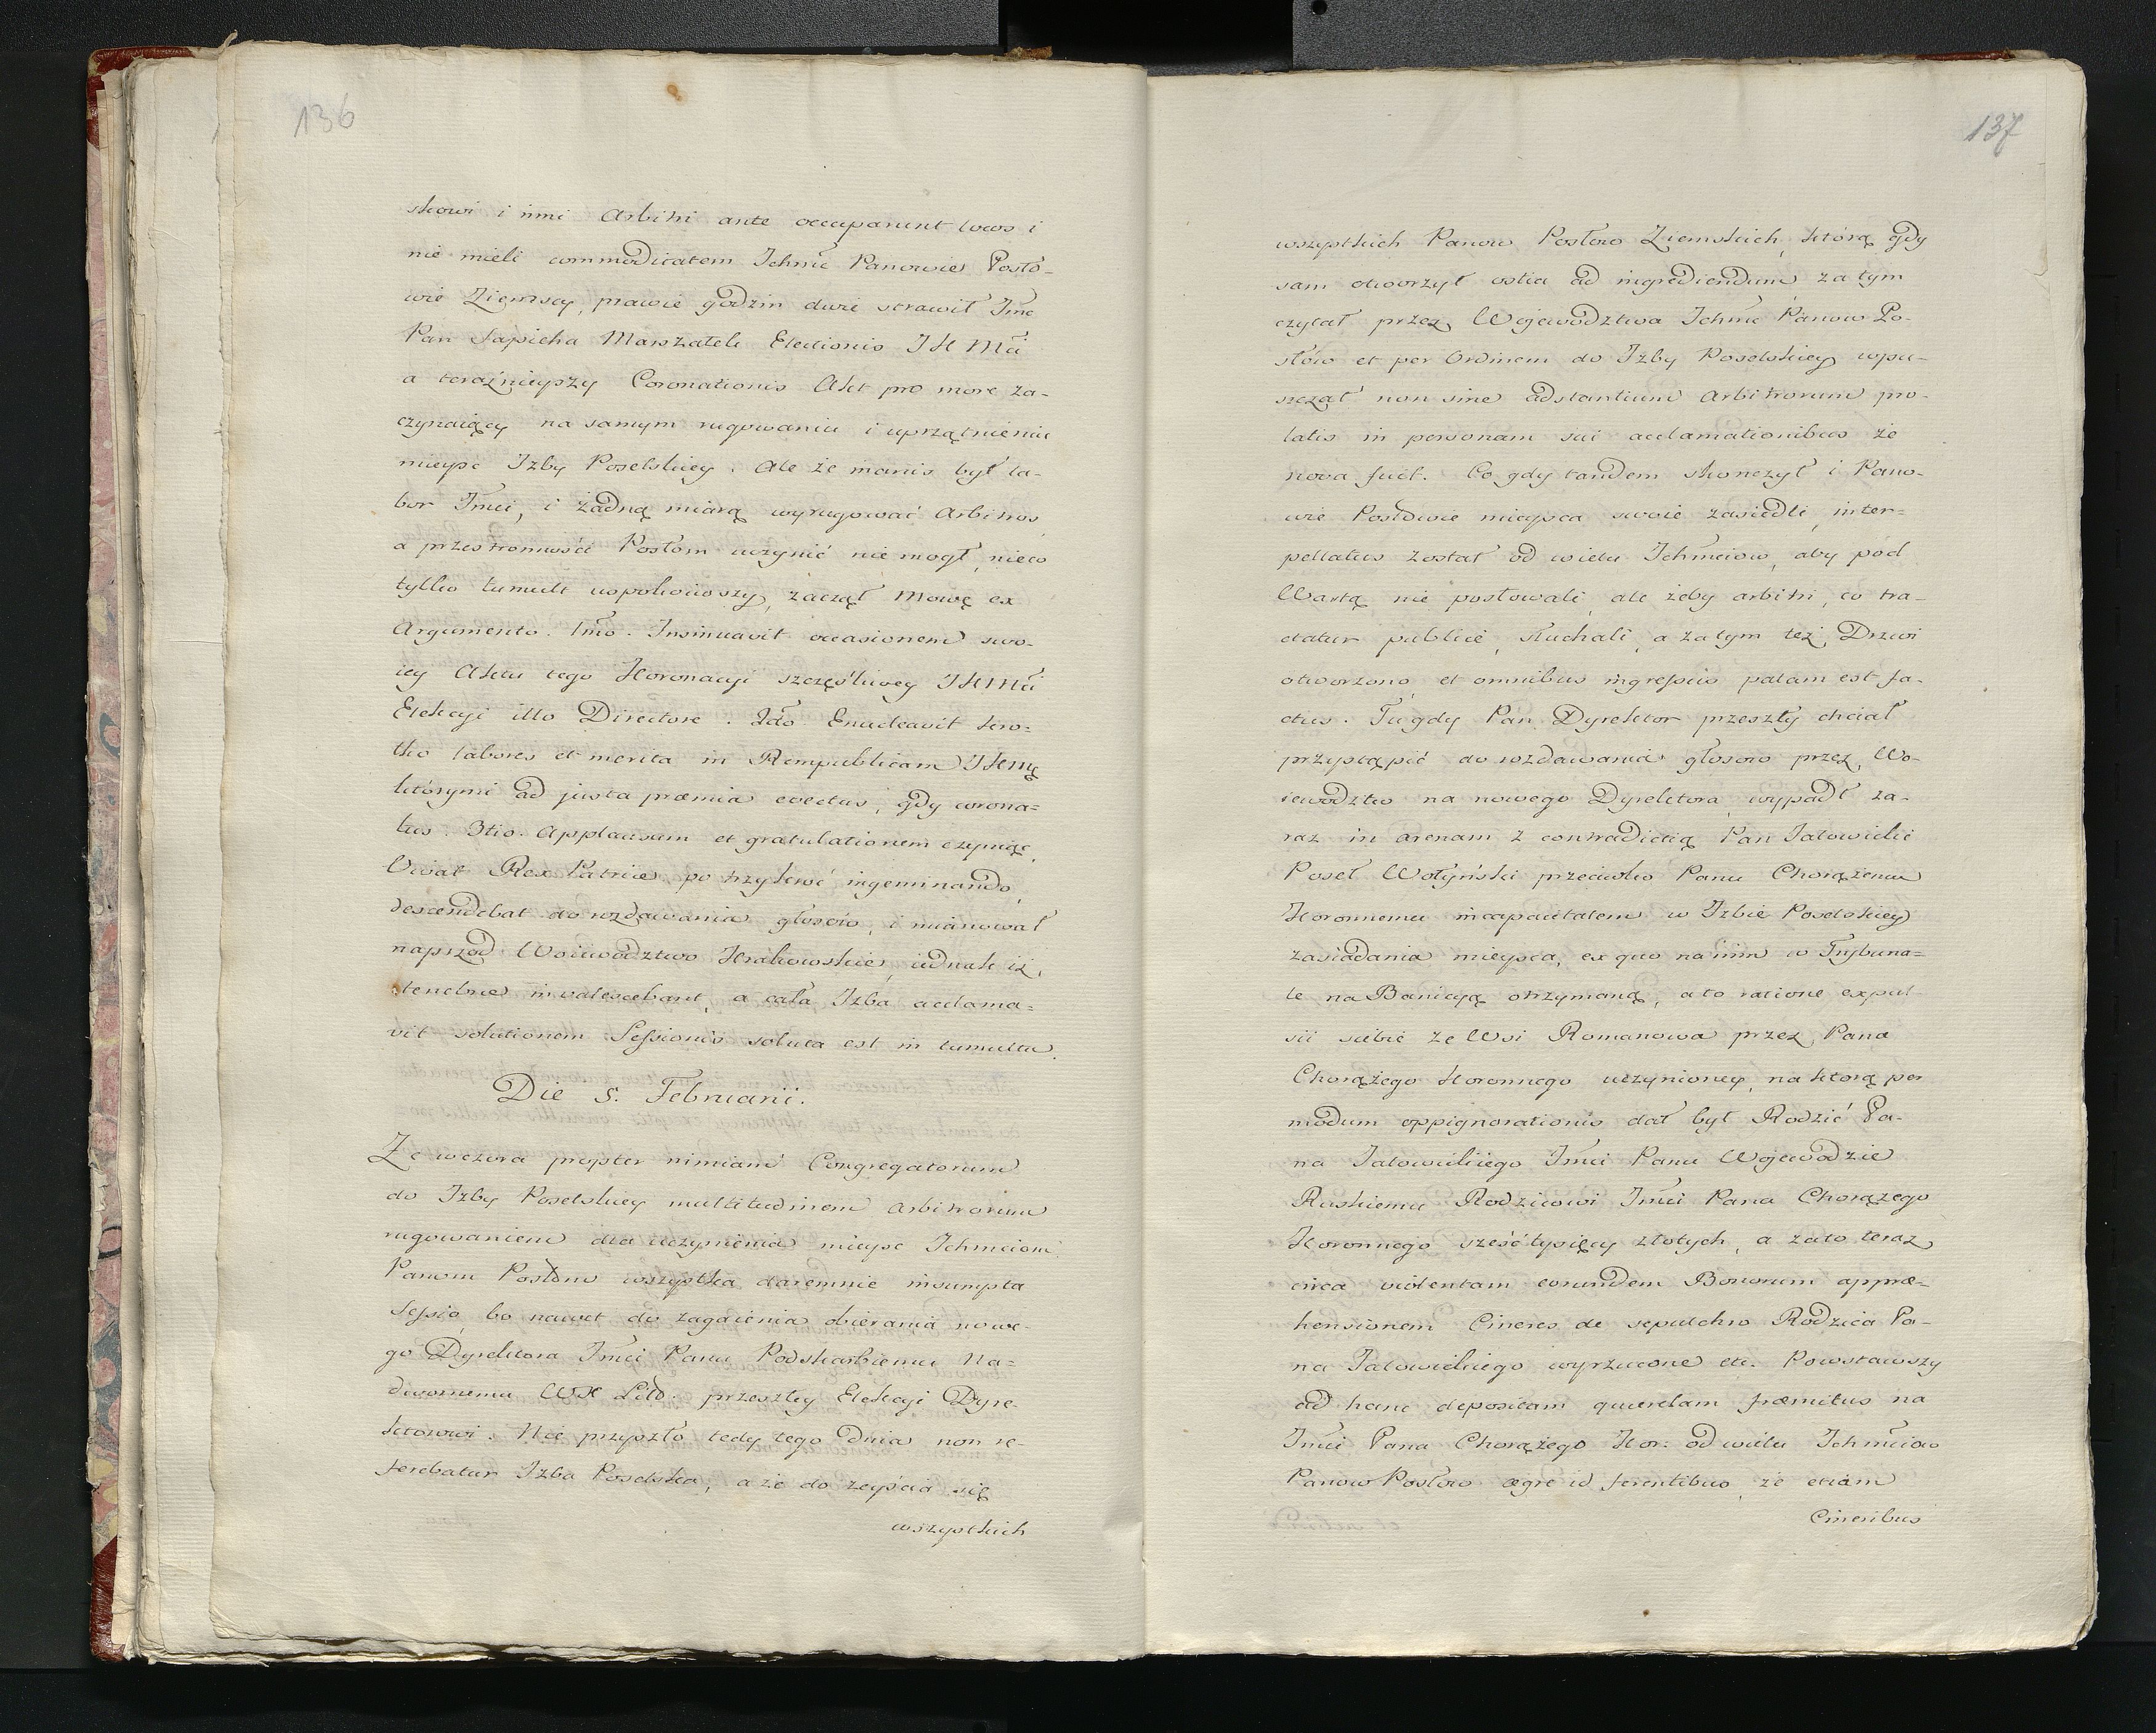 136
skowi i inni Arbitri ante occuparunt locos i
nie mieli commoditatem Ichmć Panowie Posło-
wie Ziemscy, prawie godzin dwie strawił Jmć
Pan Sapieha Marszałek Electionis JKMci
a teraźnieyszy Coronationis Akt pro more za-
czynaiący na samym rugowaniu i uprzątnieniu
mieysc Izby Poselskiey. Ale że inanis był la-
bor Jmci, i żadną miarą wyrugować Arbitros,
a przestronności Posłom uczynić nie mogł, nieco
tylko tumult uspokoiwszy, zaczął Mowę ex
Argumento. 1mo. Insinuavit occasionem swo-
iey Aktu tego Koronacyi szczęśliwey JKMci
Elekcyi illo Directore. 2do. Enucleavit kro-
tko labores et merita in Rempublicam JKMę
ktorymi ad justa præmia evectus, gdy corona-
tus. 3tio. Applausum et gratulationem czyniąc,
Vivat Rex Patriæ po trzykroć ingeminando,
descendebat do rozdawania głosow, i mianował
naprzod Woiewodztwo Krakowskie, iednak iż
tenebræ invalescebant, a cała Izba acclama-
vit solutionem Sessionis soluta est in tumultu.
Die 5. Februarii.
Ze wczora propter nimiam Congregatorum
do Izby Poselskiey multitudinem Arbitrorum
rugowaniem dla uczynienia mieysc Ichmciom
Panom Posłom wszystka daremnie insumpta
Sessio, bo nawet do zagaienia obierania nowe-
go Dyrektora Jmci Panu Podskarbiemu Na-
dwornemu WX Litt. przeszłey Elekcyi Dyre-
ktorowi. Nie przyszło tedy tego dnia non re-
ferebatur Izba Poselska, aże do zeyścia się
wszystkich
137
wszystkich Panow Posłow Ziemskich, ktorą gdy
sam otworzył ostia ad ingrediendum, za tym
czytał przez Wojewodztwa Ichmć Panow Po-
słow et per Ordinem do Izby Poselskiey wpu-
szczał non sine adstantium Arbitrorum pro-
latis in personam sui acclamationibus że
nova fuit. Co gdy tandem skonczył i Pano-
wie Posłowie mieysca swoie zasiedli, inter-
pellatus został od wielu Ichmciow, aby pod
Wartą nie posłowali, ale żeby arbitri, co tra-
ctatur publice, słuchali, a zatym też Drzwi
otworzono, et omnibus ingressus palam est fa-
ctus. Tu gdy Pan Dyrektor przeszły chciał
przystąpić do rozdawania głosow przez Wo-
iewodztwo na nowego Dyrektora, wypadł za-
raz in arenam z contradictią Pan Jałowicki
Poseł Wołyński przeciwko Panu Chorążemu
Koronnemu incapacitatem w Izbie Poselskiey
zasiadania mieysca, ex quo na nim w Trybuna-
le na Banicyą otrzymaną, a to ratione expul-
sii siebie ze Wsi Romanowa przez Pana
Chorążego Koronnego uczynioney, na ktorą per
modum oppignorationis dał był Rodzić Pa-
na Jałowickiego Jmci Panu Wojewodzie
Ruskiemu Rodzicowi Jmci Pana Chorążego
Koronnego sześć tysięcy złotych, a zato teraz
circa violentam eorundem Bonorum appræ-
hensionem Cineres de sepulchro Rodzica Pa-
na Jałowickiego wyrzucone etc. Powstawszy
ad hanc depositam querelam fræmitus na
Jmci Pana Chorążego Kor: od wielu Ichmciow
Panow Posłow ægre id ferentibus, że etiam
Cineribus